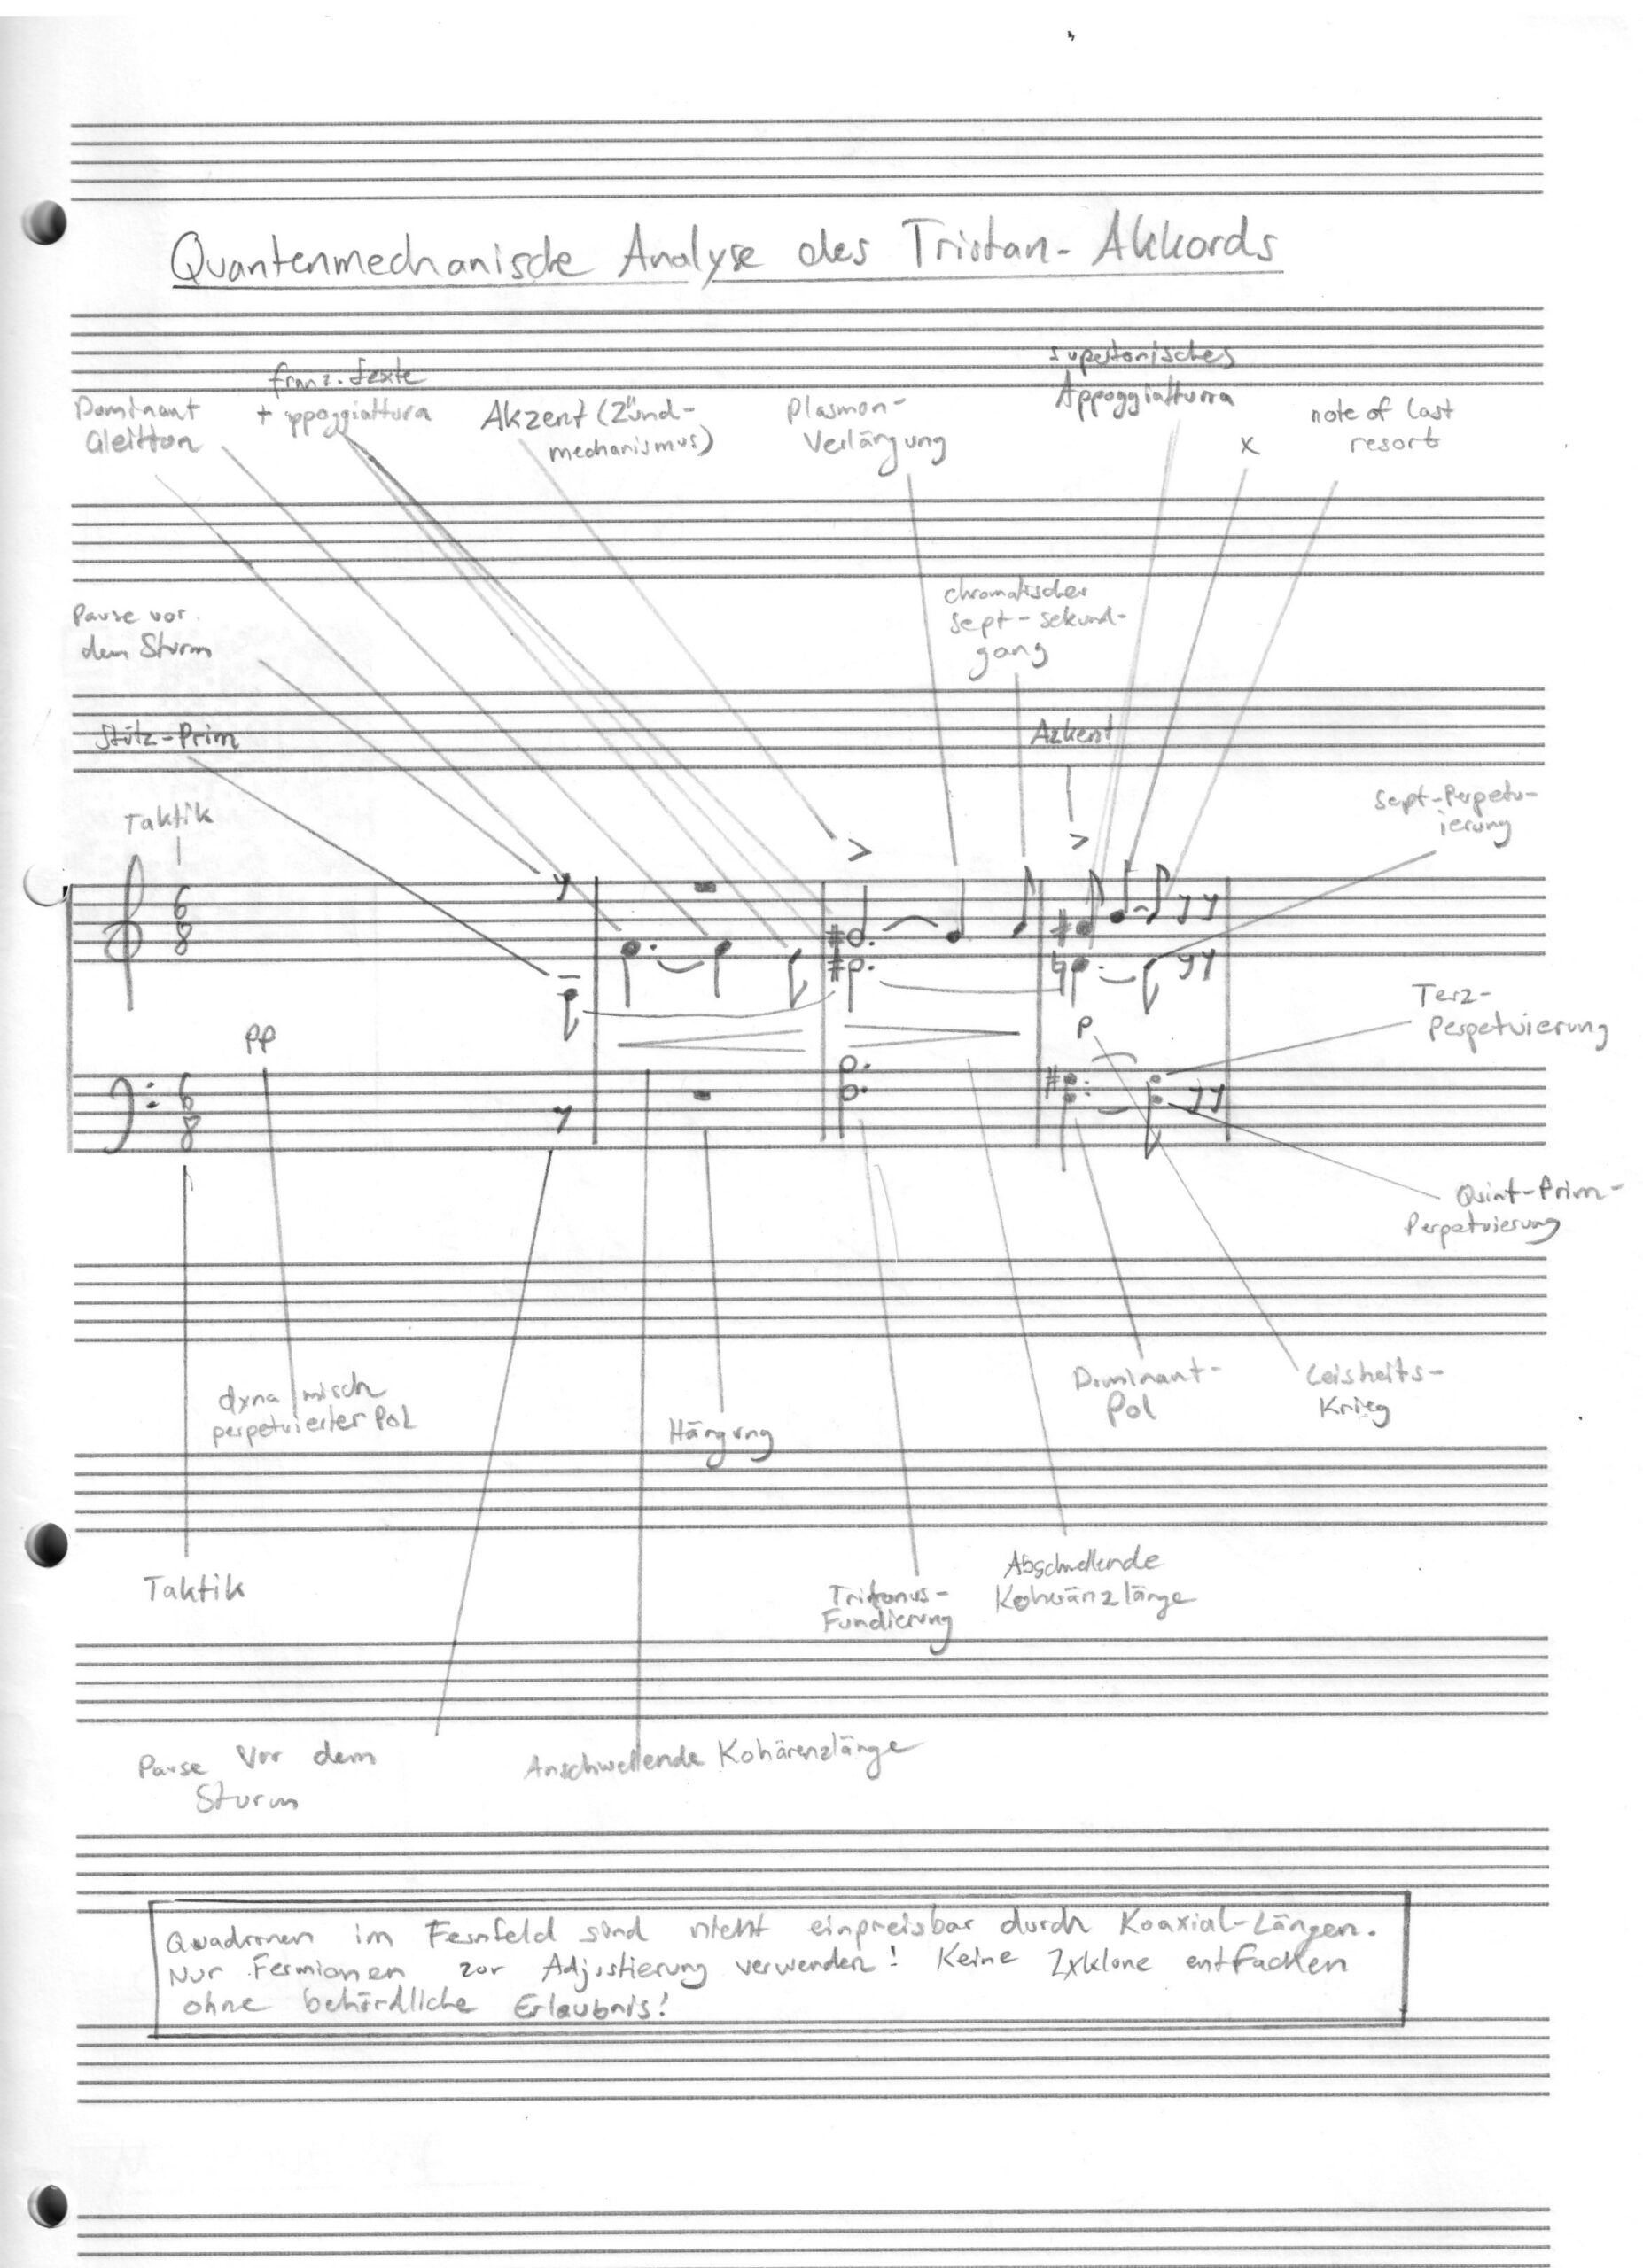 Quantenmechanische Analyse des Tristan-Akkords
supertonisches
Appoggiaturra
franz. Sexte
+ ppoggiattura
Dominant
Gleitton
Akzent (Zünd-
mechanismus)
Plasmon-
Verlängung
x
note of last
resort
Pause vor
dem Sturm
chromatischer
Sept-Sekund-
gang
Stütz-Prim
Azkent
Taktik
Sept-Perpetu-
ierung
6
8
>
>
Terz-
Perpetuierung
pp
p
6
8
Quint-Prim-
Perpetuierung
dynamisch
perpetuierter Pol
Hängung
Dominant-
Pol
Leisheits-
Krieg
Taktik
Tritonus-
Fundierung
Abschwellende
Pause vor dem
Sturm
Anschwellende Kohärenzlänge
Quadronen im Fernfeld sind nicht einpreisbar durch Koaxial-Längen.
Nur Fermionen zur Adjustierung verwenden! Keine Zyklone entfachen
ohne behördliche Erlaubnis!